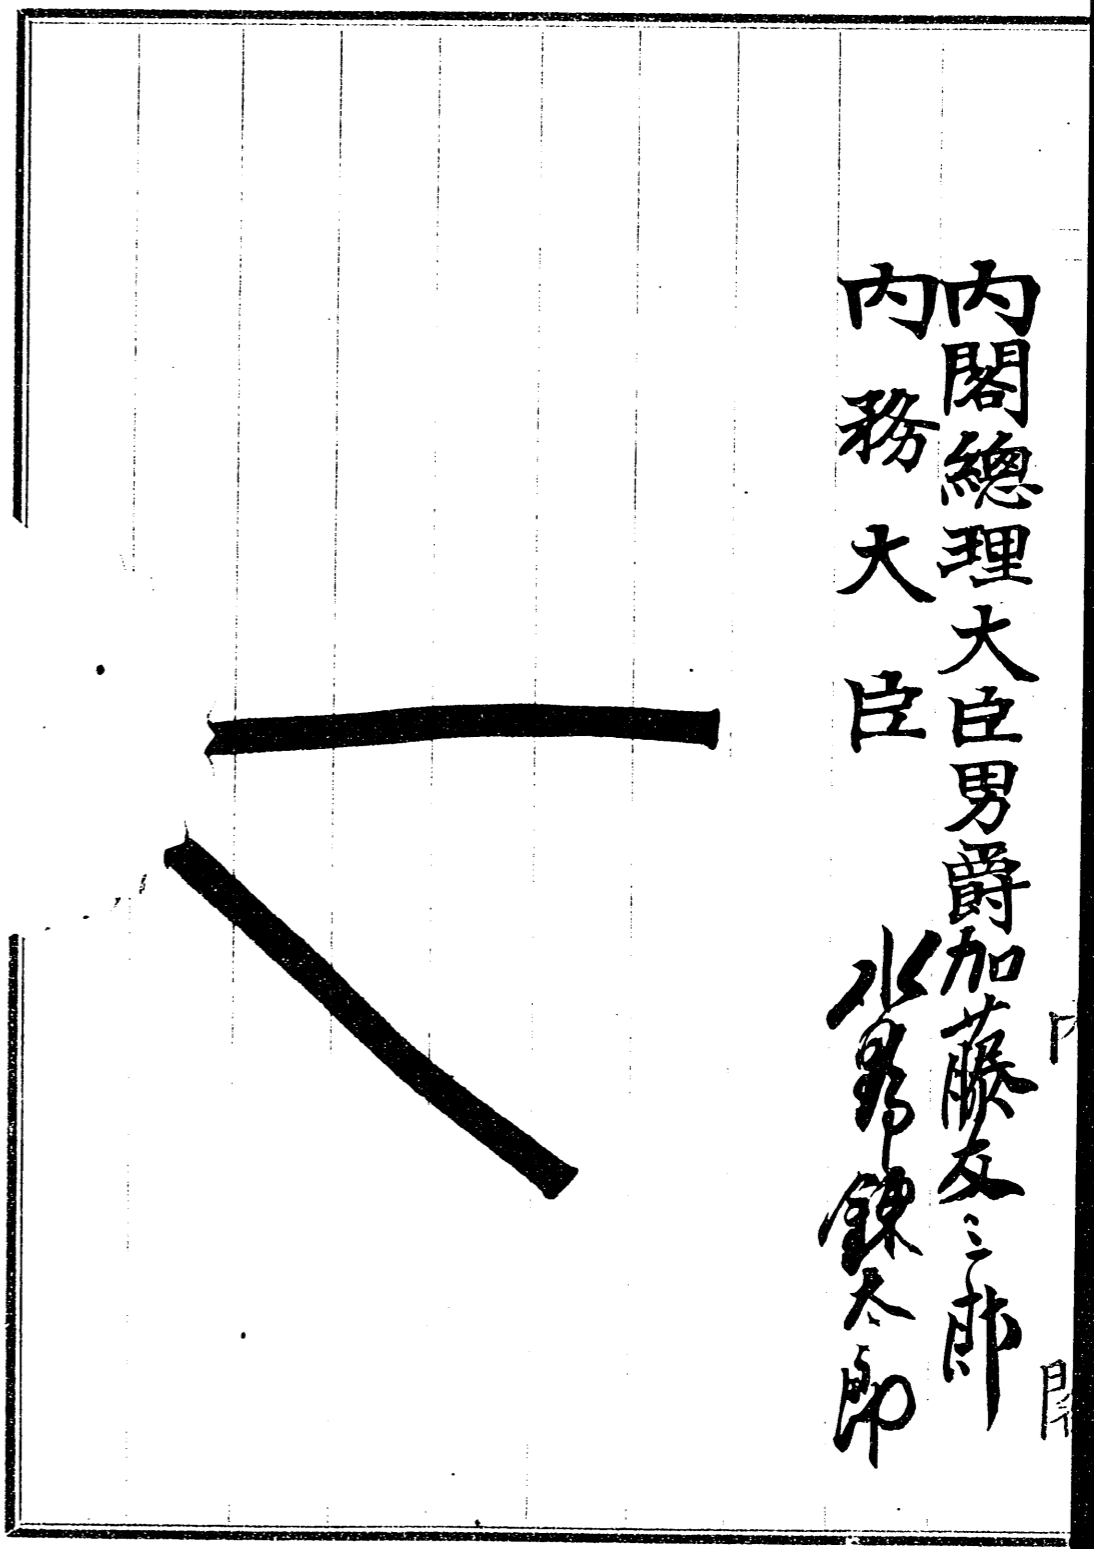 内閣總理大臣男爵加藤友三郎
内務大臣 水野錬太郎